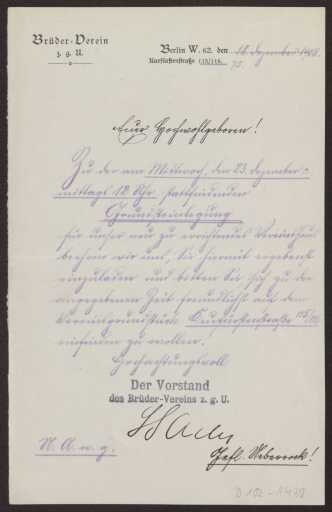 Brüder-Verein
z. g. U.
Berlin W. 62, den 18. Dezember 1908.
Kurfürstenstraße 115/116.
Euer Hochwohlgeboren!
Zu der am Mittwoch, den 23. Dezember
mittags 12 Uhr stattfindenden
Grundsteinlegung
für unser neu zu errichtendes Vereinshaus
beehren wir uns, Sie hiermit ergebenst
einzuladen und bitten Sie sich zu der
angegebenen Zeit freundlichst auf dem
Vereinsgrundstück Kurfürstenstraße 115/116
einfinden zu wollen.
Hochachtungsvoll
Der Vorstand
des Brüder-Vereins z. g. U.
U. A. w. g.